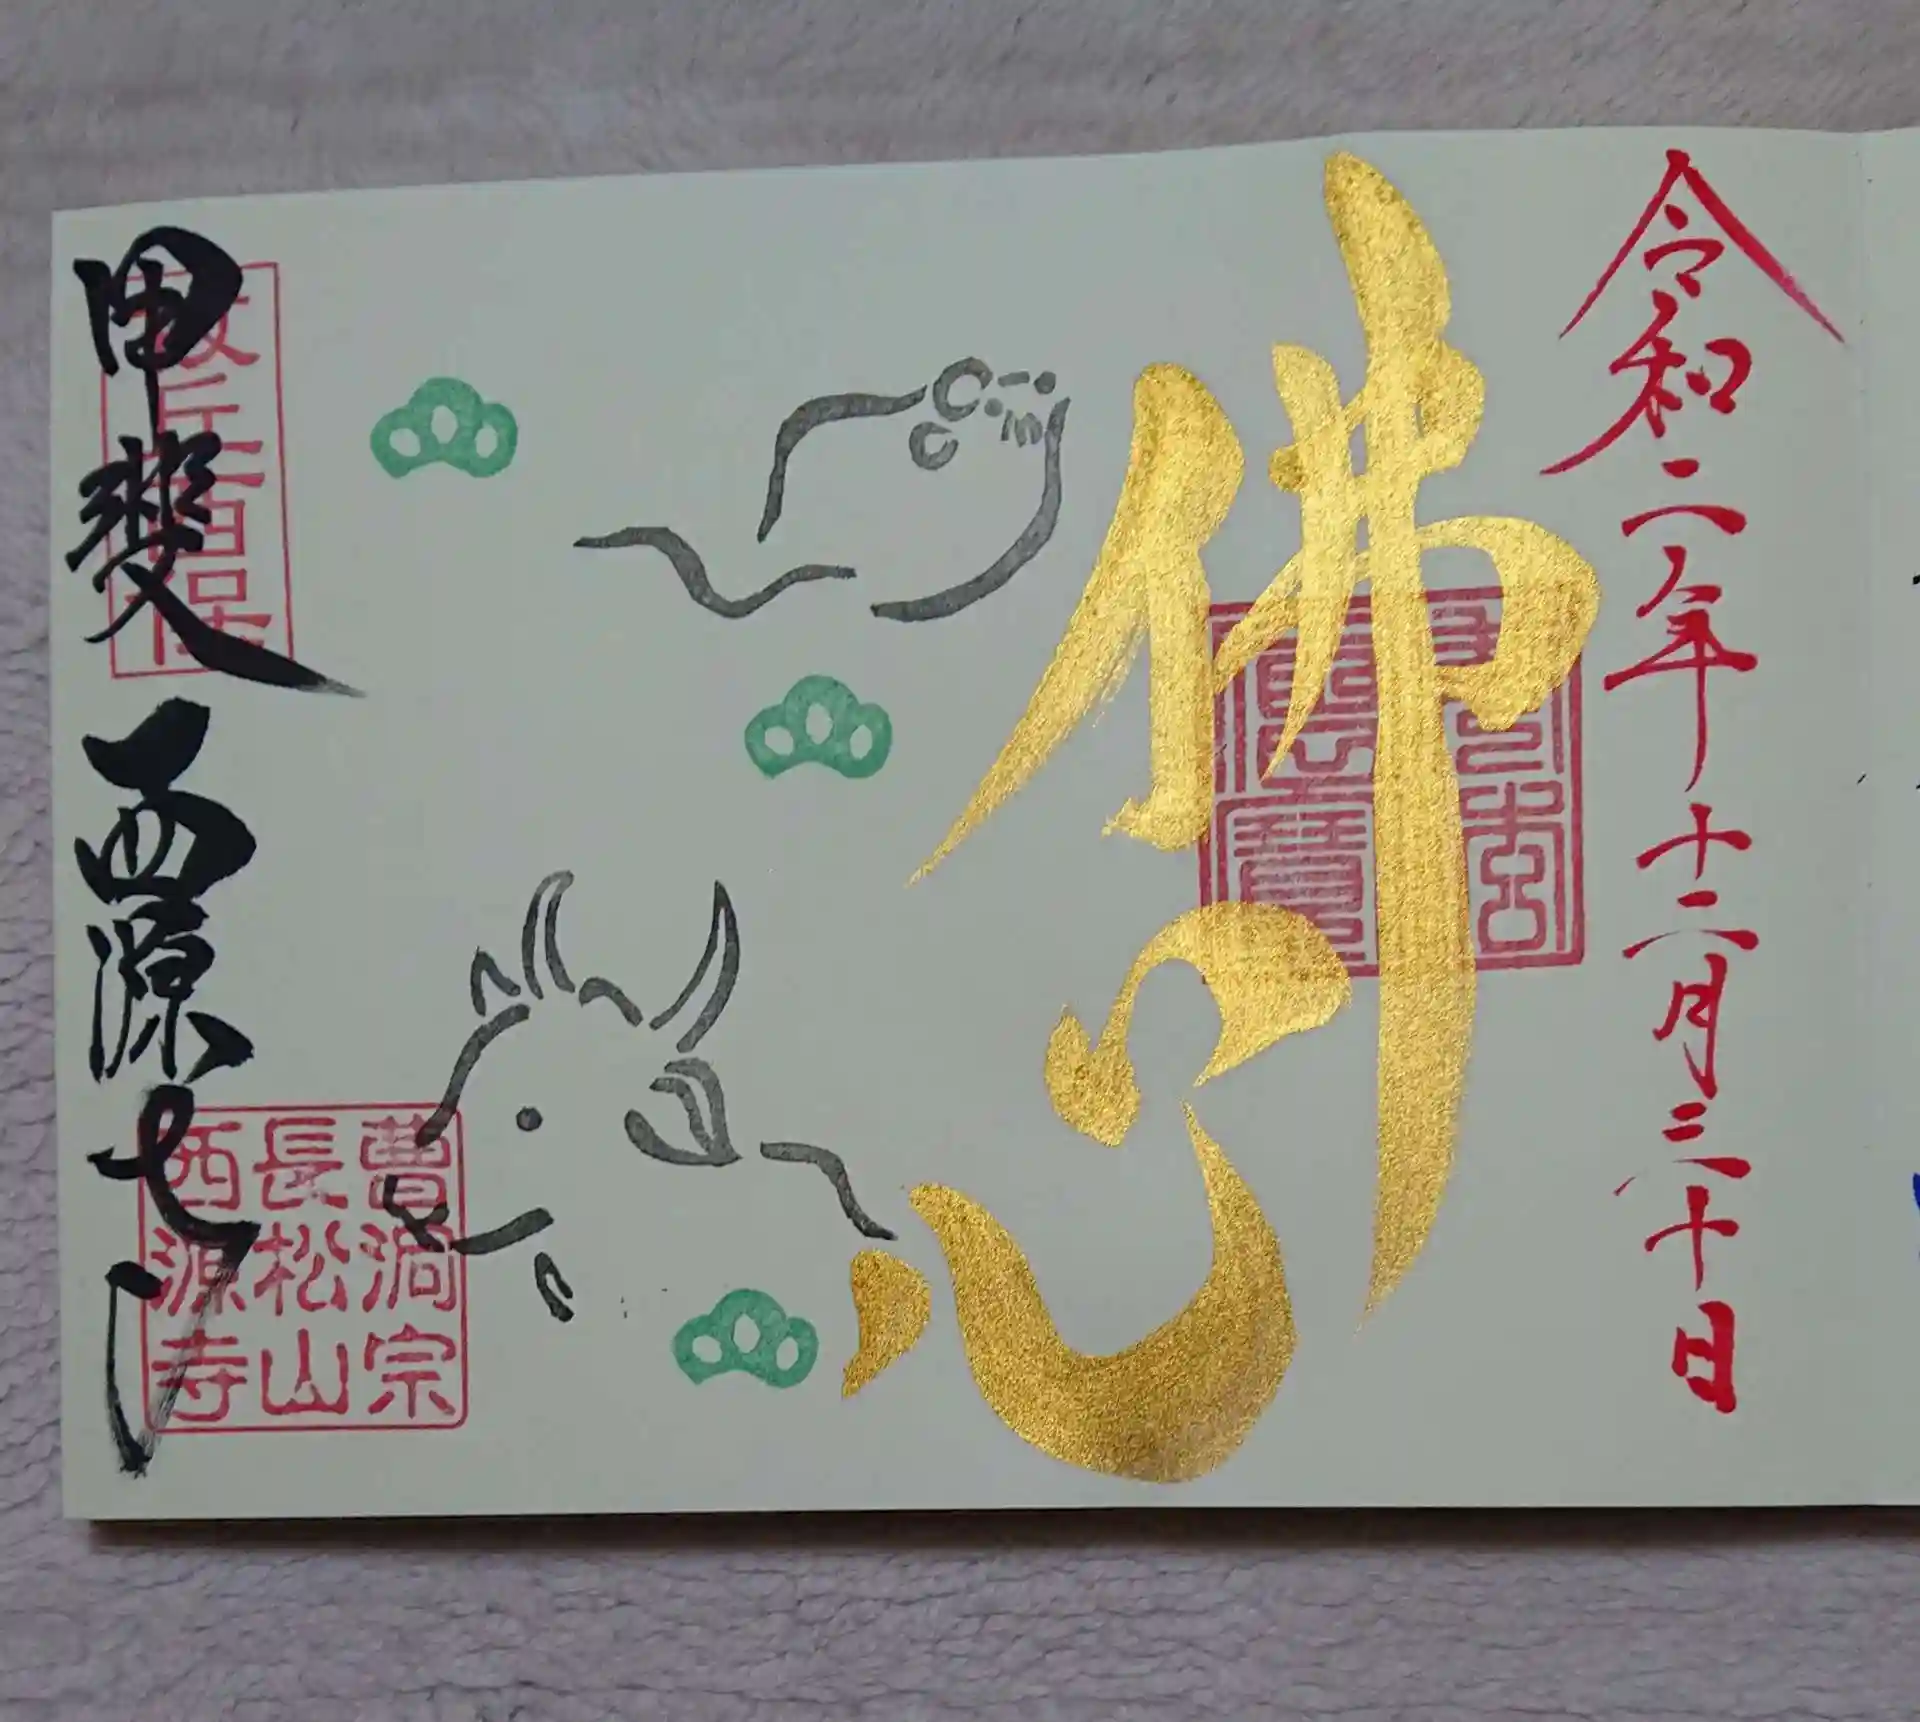 令和二年十二月三十日
佛心
甲斐 西源寺
曹洞宗
長松山
西源寺